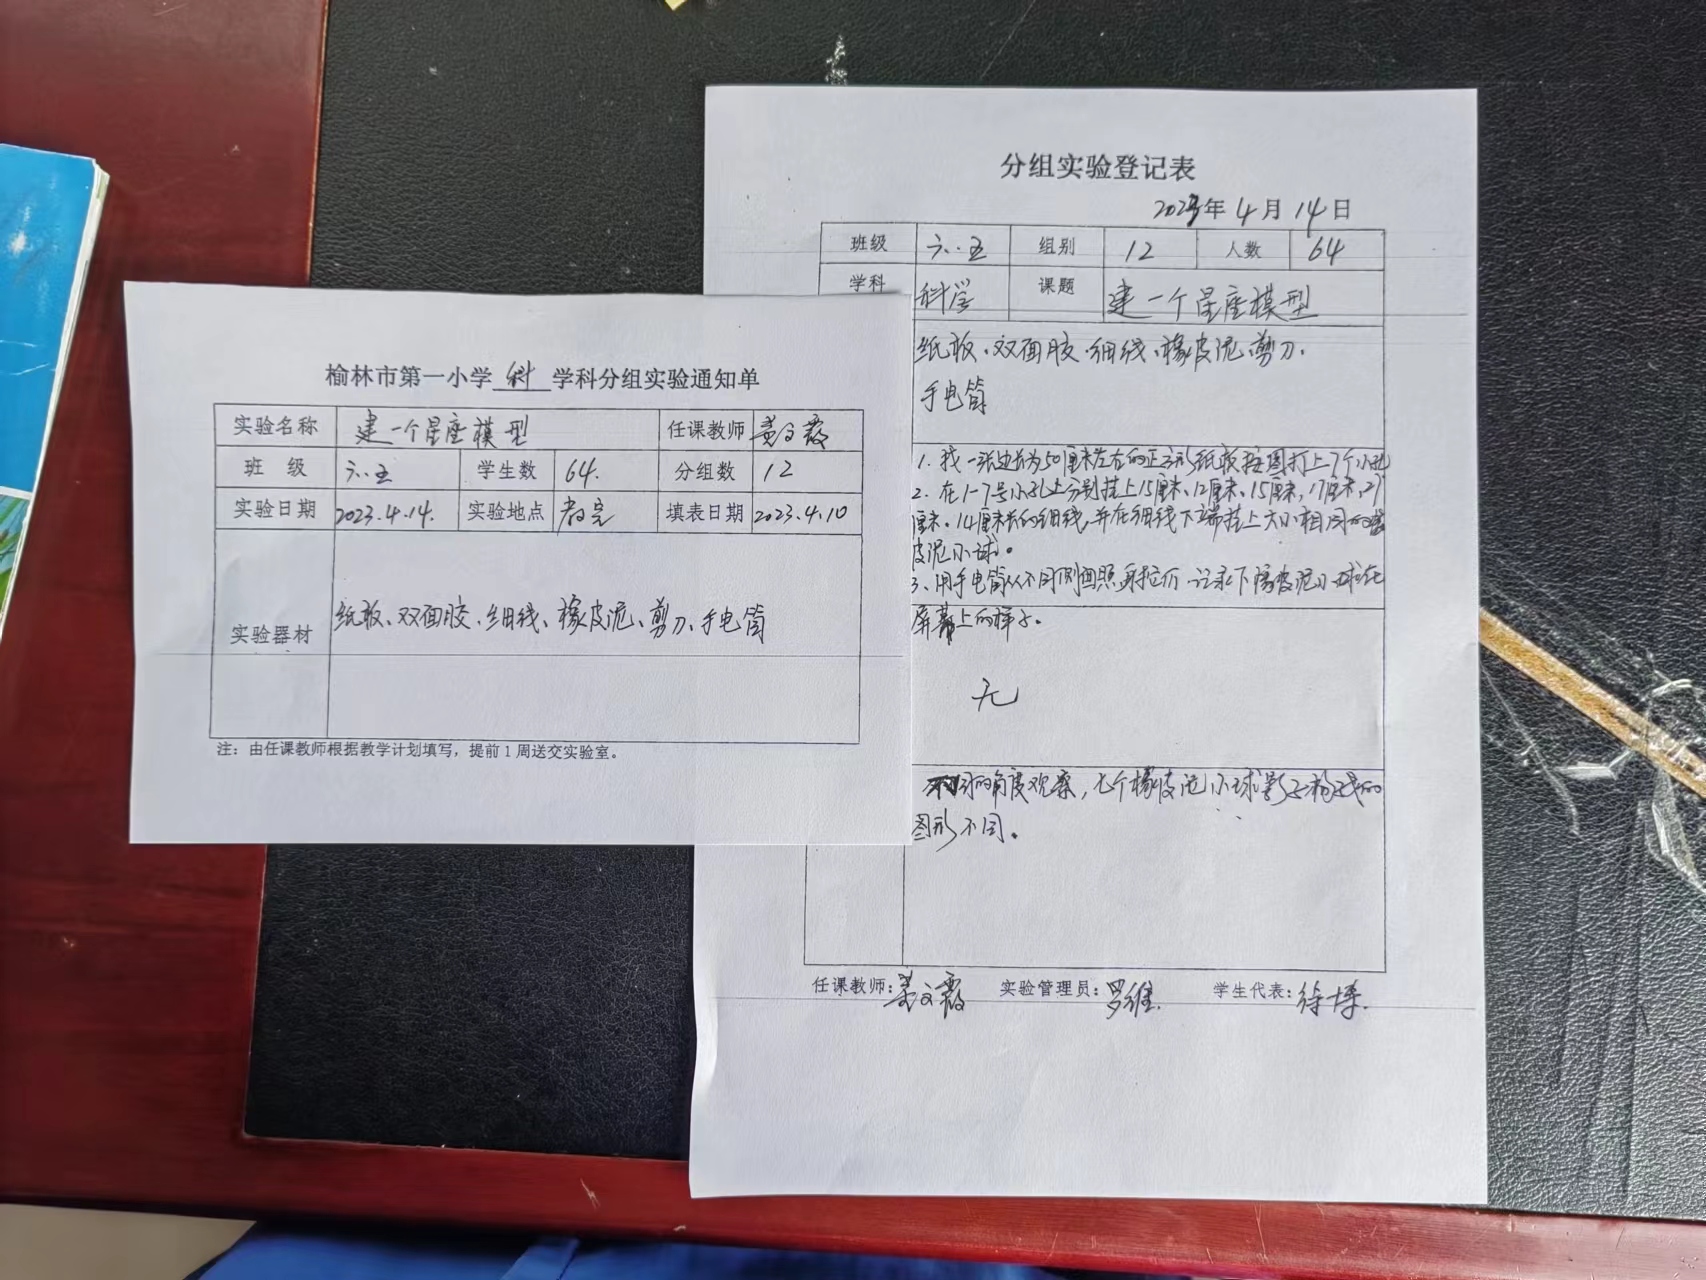 榆林市第一小学 科 学科分组实验通知单
实验名称 建一个星座模型 任课教师 姜文霞
班 级 六.五 学生数 64. 分组数 12
实验日期 2023.4.14. 实验地点 教室 填表日期 2023.4.10
实验器材 纸板、双面胶、细线、橡皮泥、剪刀、手电筒
注：由任课教师根据教学计划填写，提前1周送交实验室。
分组实验登记表
2023年4月14日
班级 六.五 组别 12 人数 64
学科 科学 课题 建一个星座模型
纸板、双面胶、细线、橡皮泥、剪刀.
手电筒
1.找一张边长为50厘米左右的正方形纸板按图打上7个小孔
2.在1-7号小孔上分别挂上15厘米、12厘米、15厘米,17厘米、21
厘米、14厘米长的细线,并在细线下端挂上大小相同的橡
皮泥小球。
3、用手电筒从不同侧面照射它们.记录下橡皮泥小球在
屏幕上的样子。
无
不同的角度观察,七个橡皮泥小球影子构成的
图形不同。
任课教师：姜文霞 实验管理员：罗维. 学生代表：徐博.